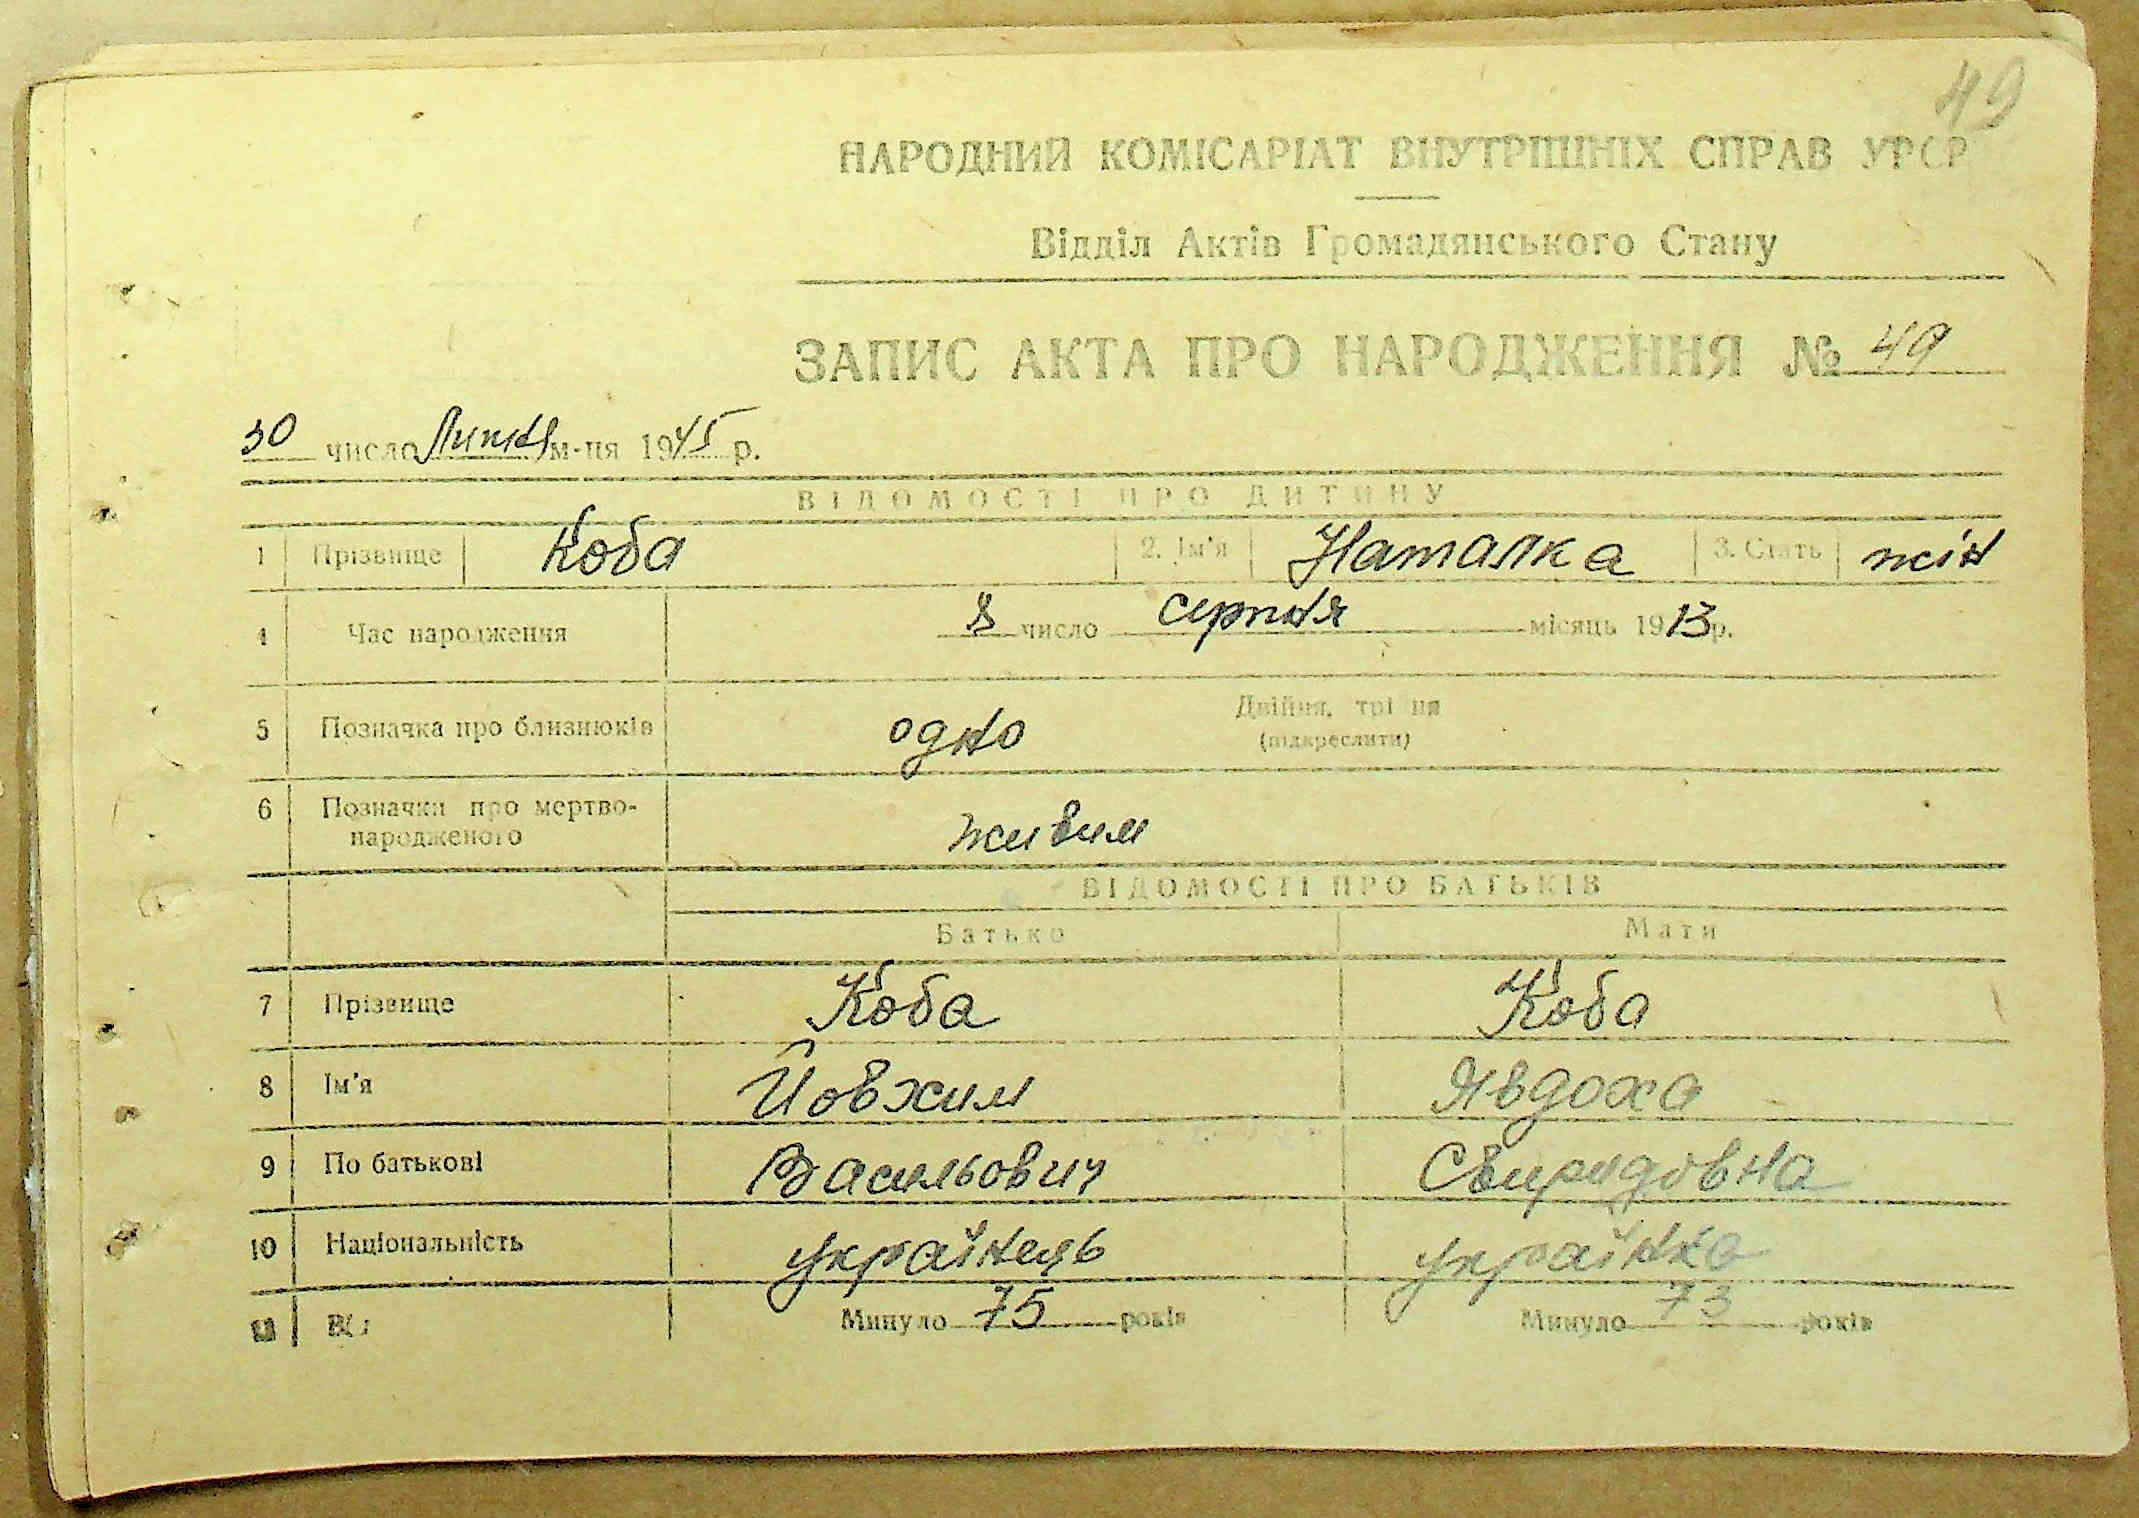 49
НАРОДНИЙ КОМІСАРІАТ ВНУТРІШНІХ СПРАВ УРСР
Відділ Актів Громадянського Стану
ЗАПИС АКТА ПРО НАРОДЖЕННЯ № 49
30 число Липня м-ця 1945 р.
ВІДОМОСТІ ПРО ДИТИНУ
1 Прізвище Коба 2. Ім'я Наталка 3. Стать жін
4 Час народження 8 число серпня місяць 1913 р.
5 Позначка про близнюків одно Двійня, трійня
(підкреслити)
6 Позначки про мертво-
народженого живим
ВІДОМОСТІ ПРО БАТЬКІВ
Батько Мати
7 Прізвище Коба Коба
8 Ім'я Йовхим Явдоха
9 По батькові Васильович Свиридовна
10 Національність українець українка
11 Вік Минуло 75 років Минуло 73 років